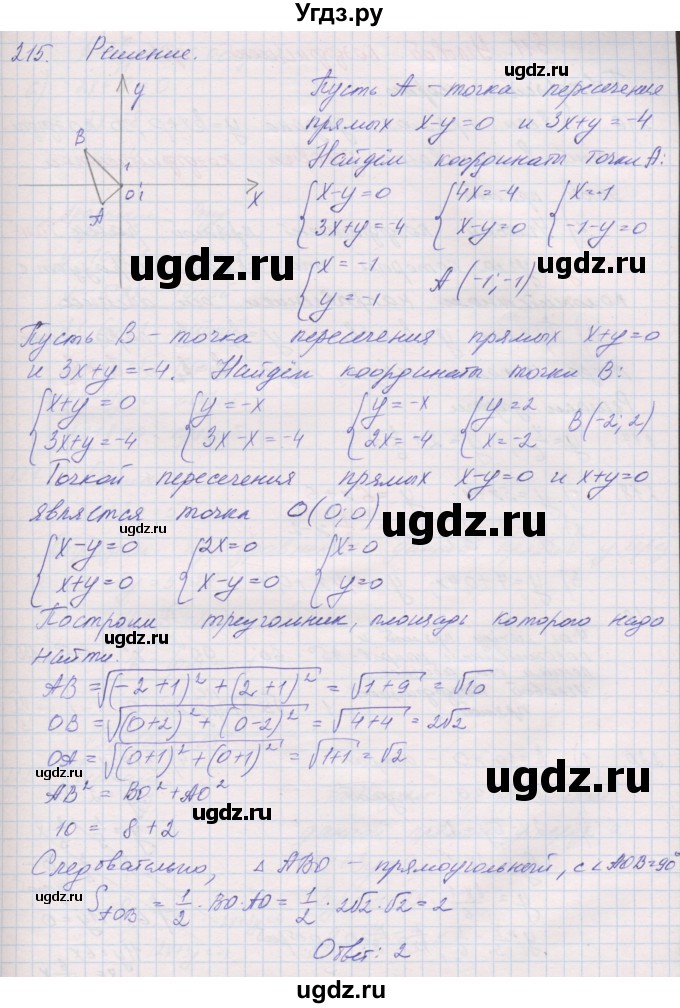 Угдз.ру
215. Решение.
y
B
1
0 1
x
A
Пусть A - точка пересечения
прямых x-y=0 и 3x+y=-4
Найдём координаты точки A:
{x-y=0 {4x=-4 {x=-1
{3x+y=-4 {x-y=0 {-1-y=0
{x=-1
{y=-1 A(-1;-1)
ugdz.ru
ugdz.ru
Пусть B - точка пересечения прямых x+y=0
и 3x+y=-4. Найдём координаты точки B:
{x+y=0 {y=-x {y=-x {y=2
{3x+y=-4 {3x-x=-4 {2x=-4 {x=-2 B(-2;2)
Точкой пересечения прямых x-y=0 и x+y=0
является точка O(0;0)
ugdz.ru
ugdz.ru
{x-y=0 {2x=0 {x=0
{x+y=0 {x-y=0 {y=0
Построим треугольник, площадь которого надо
найти.
ugdz.ru
AB=√((-2+1)²+(2+1)²)=√(1+9)=√10
OB=√((0+2)²+(0-2)²)=√(4+4)=2√2
OA=√((0+1)²+(0+1)²)=√(1+1)=√2
ugdz.ru
ugdz.ru
AB²=BO²+AO²
10 = 8+2
ugdz.ru
Следовательно, △ABO - прямоугольный, с ∠AOB=90°
ugdz.ru
S_AOB = 1/2 · BO·AO = 1/2 · 2√2·√2=2
Ответ: 2
ugdz.ru
ugdz.ru